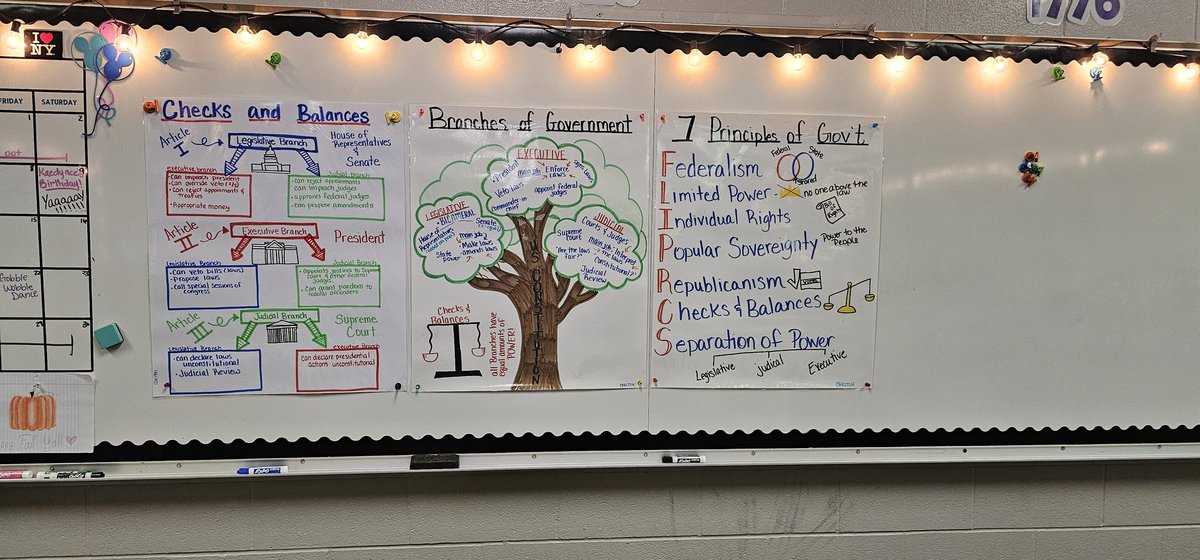 1776
I ❤ NY
FRIDAY
SATURDAY
1
2
8
9
Kaedynce's
Birthday!
Yaaaayyy
15
Gobble
Wobble
Dance
Fall Y'all
Checks and Balances
Article
I
Legislative Branch
House of
Representatives
&
Senate
executive branch
• Can impeach president
• Can override veto (2/3)
• Can reject appointments &
treaties
• Appropriate money
Judicial Branch
• Can reject appointments
• Can impeach judges
• approves federal judges
• can propose amendments
Article
II
Executive Branch
President
Legislative Branch
• Can veto bills (laws)
• Propose laws
• Call special sessions of
congress
Judicial Branch
• Appoints justices to Supreme
court & other federal
judges
• Can grant pardons to
federal offenders
Article
III
Judicial Branch
Supreme
Court
Legislative Branch
• can declare laws
unconstitutional
• Judicial Review
Executive Branch
• can declare presidential
actions unconstitutional
Branches of Government
EXECUTIVE
President
main job
Enforce
Laws
Signs laws
Veto laws
appoint federal
judges
Commander in
chief
LEGISLATIVE
• BICAMERAL
House of
Representatives
Senate
main job
Make laws
• amends laws
JUDICIAL
Courts & Judges
Supreme
Court
main job - Interpret
the laws
"Are the laws
fair?"
Constitutional?
Judicial
Review
US CONSTITUTION
Checks &
Balances
all Branches have
equal amounts of
POWER!
CARLTEN
7 Principles of Gov't.
Federalism
Federal
State
Shared
Limited Power
no one above the
law
Individual Rights
Bill of Rights
Popular Sovereignty
Power to the
People
Republicanism
Checks & Balances
Separation of Power
Legislative
Judicial
Executive
CARLTEN
EXPO